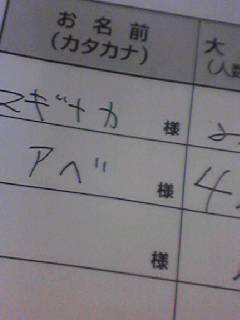 お名前 大
(カタカナ) (人数
スギナカ 様
アベ 様 4
様